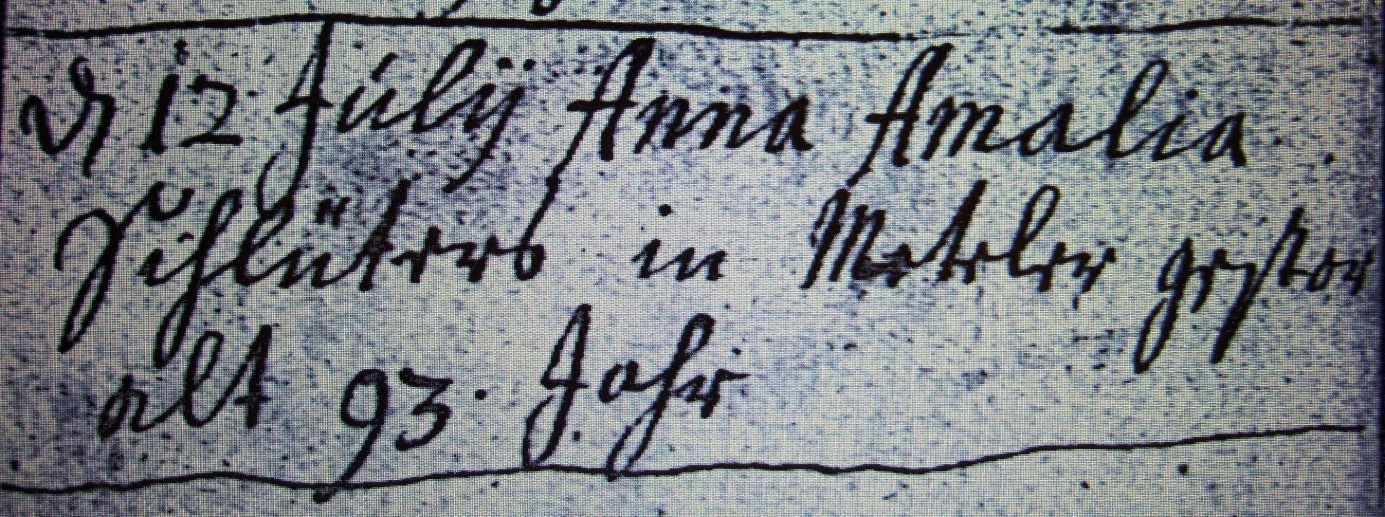 d 12 Julÿ Anna Amalia
Schlüters in Meteler gestor
alt 93. Jahr